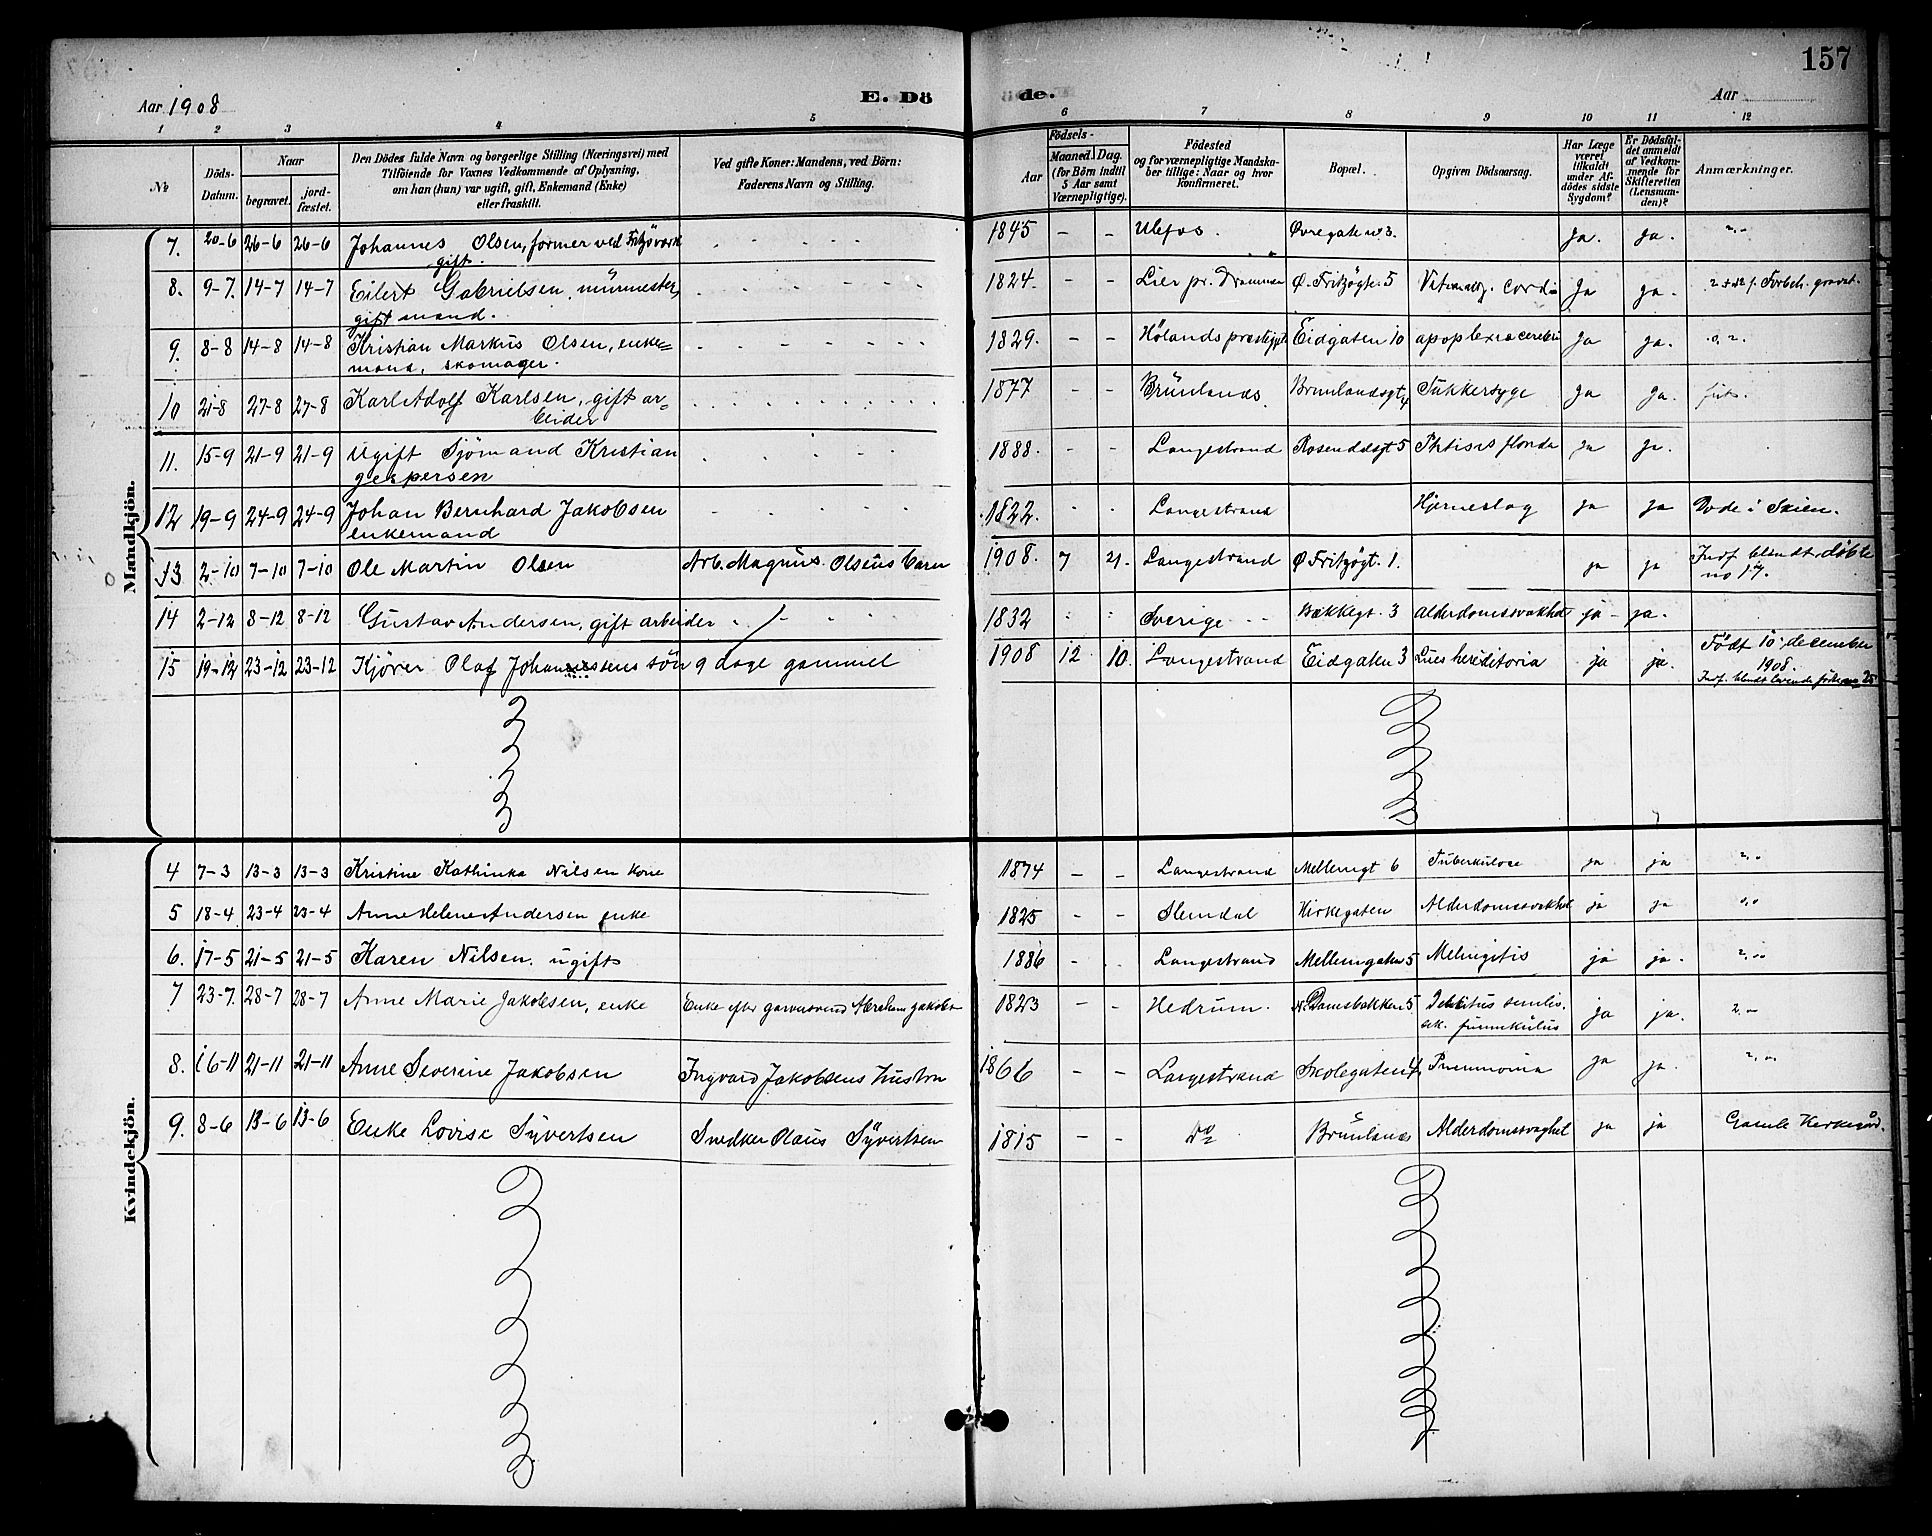 157
Aar 1908 E. Dö de. Aar
1 2 3 4 5 6 7 8 9 10 11 12
№
Döds-Datum.
Naar
begravet.
jord-fæstet.
Den Dödes fulde Navn og borgerlige Stilling (Næringsvei) med
Tilföiende for Voxnes Vedkommende af Oplysning,
om han (hun) var ugift, gift, Enkemand (Enke)
eller fraskilt.
Ved gifte Koner: Mandens, ved Börn:
Faderens Navn og Stilling.
Födsels-
Aar
Maaned. Dag.
(for Börn indtil
5 Aar samt
Værnepligtige).
Födested
og for værnepligtige Mandska-
ber tillige: Naar og hvor
konfirmeret.
Bopæl.
Opgiven Dödsaarsag.
Har Læge
været
tilkaldt
under Af-
dödes sidste
Sygdom?
Er Dödsfal-
det anmeldt
af Vedkom-
mende for
Skifteretten
(Lensman-
den)?
Anmærkninger.
Mandkjön.
7. 20-6 26-6 26-6 Johannes Olsen, former ved Fritzöværk 1845 - - Ulefos. Øvregate no 3. Ja. Ja.
gift.
8. 9-7. 14-7 14-7 Eilert Gabrielsen, mürmester, 1824 - - Lier pr. Drammen Ø. Fritzøgte. 5 Vitium cordis Ja ja.
gift mand.
9. 8-8 14-8 14-8 Kristian Markus Olsen, enke= 1829. - - Hölands præstegjeld Eidgaten 10 apoplexia cerebri Ja ja.
mand, skomager.
10 21-8 27-8 27-8 Karl Adolf Karlsen, gift ar= 1877 - - Brünlands Brunlandsgt 4 Sukkersyge Ja Ja.
beider
11. 15-9 21-9 21-9 Ugift Sjömand Kristian 1888. - - Langestrand Rosendalsgt 5 Phtisis florida Ja Ja.
Jespersen
12 19-9 24-9 24-9 Johan Bernhard Jakobsen 1822. Langestrand Hjerneslag ja ja Döde i Skien.
enkemand
13 2-10 7-10 7-10 Ole Martin Olsen Arb. Magnus Olsens Barn 1908. 7 21. Langestrand Ø Fritzøgt. 1. ja ja Indf. blandt döbte
no 17.
14 2-12 8-12 8-12 Gustav Andersen, gift arbeider 1832 Sverige Bækkegt. 3 Alderdomssvakhed ja - ja.
15 19-12 23-12 23-12 Kjörer Olaf Johannessens sön 9 dage gammel 1908 12 10. Langestrand Eidgaten 3 Lues hereditoria ja ja. Födt 10 december
1908.
Indf. blandt levende födte no 25
Kvindekjön.
4 7-3 13-3 13-3 Kristine Kathinka Nilsen kone 1874 - - Langestrand Mellemgt 6 Tuberkulose ja ja
5 18-4 23-4 23-4 Anne Helene Andersen enke 1825 - - Slemdal Kirkegaten Alderdomssvakhed ja ja
6. 17-5 21-5 21-5 Karen Nilsen, ugift 1886 - Langestrand Mellemgaten 5 ja ja.
7 23-7. 28-7 28-7 Anne Marie Jakobsen, enke Enke efter garversvend Abraham Jakobs 1823 - - Hedrum. Damsbakken 5 ja ja.
8. 16-11 21-11 21-11 Anne Severine Jakobsen Ingvard Jakobsens Hustru 1866 - - Langestrand Skolegaten 4 Pneumonia ja ja.
9. 8-6 13-6 13-6 Enke Lovise Syvertsen Snedker Olaus Syvertsen 1815 - - Do Brünlanes Alderdomssvaghet ja ja Gamle Kirkegård.